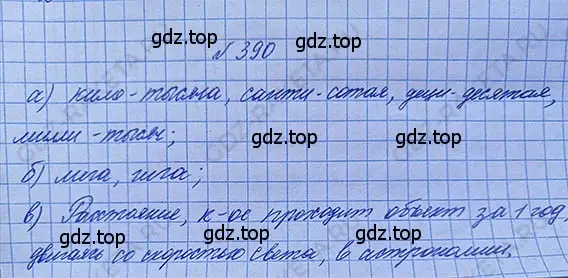 gdz.top gdz.top
№ 390
gdz.top gdz.top
а) кило-тысяча, санти-сотая, деци-десятая,
gdz.top gdz.top
милли-тысяч;
gdz.top gdz.top
б) мега, гига;
gdz.top gdz.top
в) Расстояние, к-ое проходит объект за 1 год,
двигаясь со скоростью света, в астрономии.
gdz.top gdz.top